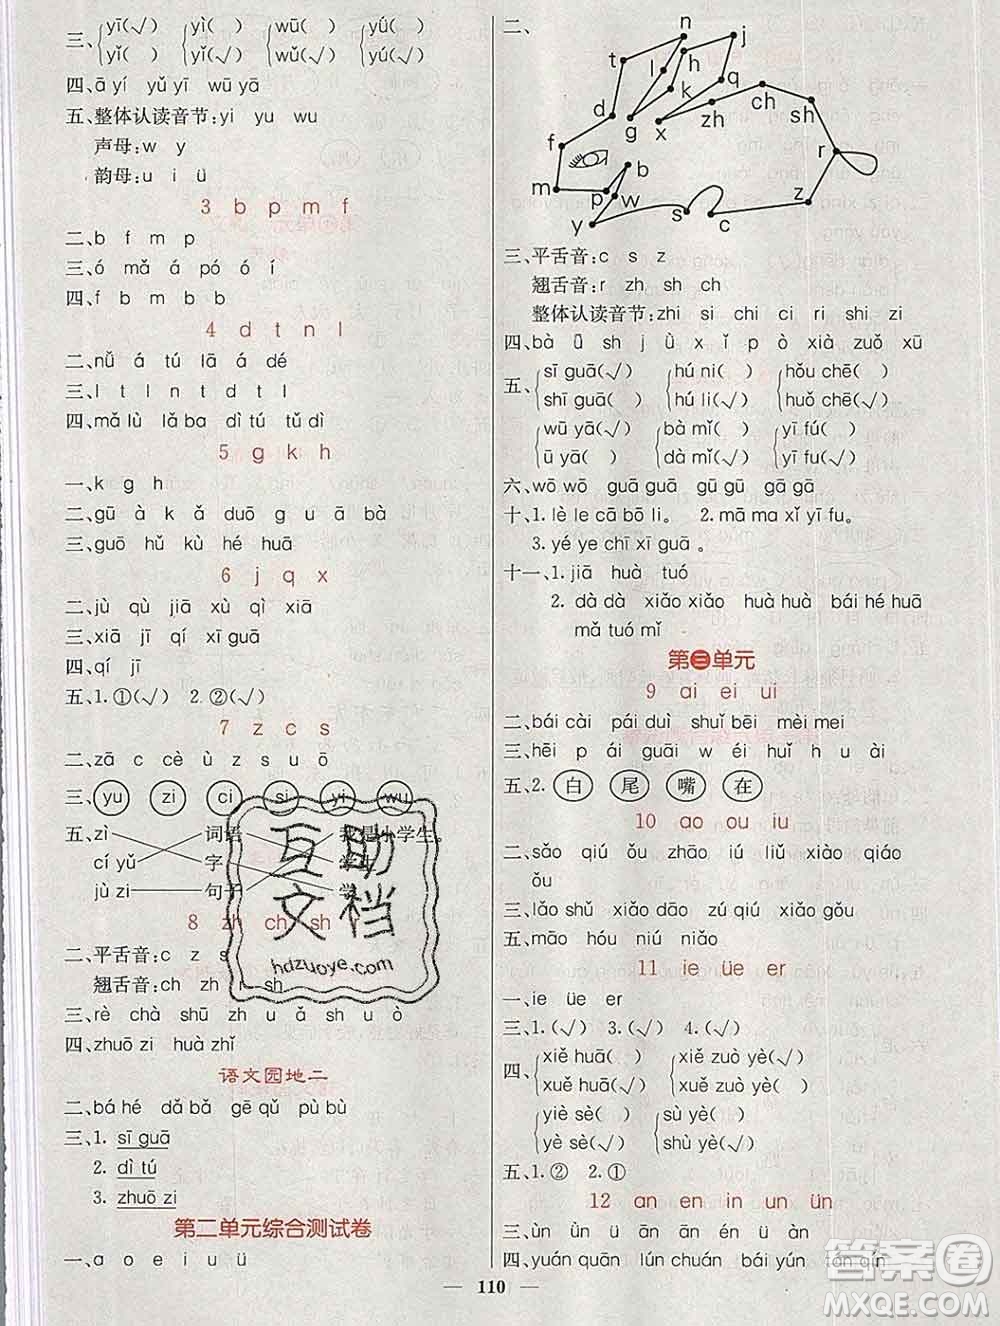 三、yī(√) yì( ) wū(√) yū( )
yǐ( ) yí(√) wù( ) yú(√)
四、ā yí yú yī wū yā
五、整体认读音节:yi yu wu
声母:w y
韵母:u i ü
3 b p m f
二、b f m p
三、ó mǎ á pà ó í
四、f b m b b
4 d t n l
二、nǚ á tú lā á dé
三、l t l n t d t l
四、mǎ lù lǎ ba dì tú tǔ dì
5 g k h
一、k g h
二、gū à kǎ duō g u bà
三、guō hǔ kù hé huā
6 j q x
二、jù qù jiā xù qì xiā
三、xiā jī qí xī guā
四、qí jī
五、1.①(√) 2.②(√)
7 z c s
二、zā c cè ù z s u ō
三、yu zi ci si yi wu
五、zì 词语 我是小学生。
cí yǔ 字 学生
jù zi 句子 学
8 zh ch sh r
二、平舌音:c z s
翘舌音:ch zh r sh
三、rè chà shū z u ǎ sh u ò
四、zhuō zi huà zhǐ
语文园地二
二、bá hé dǎ bǎ gē qǔ pù bù
三、1. sī guā
2. dì tú
3. zhuō zi
第二单元综合测试卷
一、a o e i u ü
二、
n j t l h k q d g x zh ch sh f r m p b w y s c z
三、平舌音:c s z
翘舌音:r zh sh ch
整体认读音节:zhi si chi ci ri shi zi
四、bà ǖ sh j ù x p ò xià zuǒ xū
五、sī guā(√) hú ni( ) hǒu chē( )
shī guā( ) hú li(√) huǒ chē(√)
wū yā(√) bà mǐ( ) yī fu( )
ū yā( ) dà mǐ(√) yī fú(√)
六、wō wō guā guā gū gū gā gā
十、1. lè le cā bō li。 2. mā ma xǐ yī fu。
3. yé ye chī xī guā 。
十一、1. jiā huà tuó
2. dà dà xiǎo xiǎo huà huà bái hé huā
mǎ tuó mǐ
第三单元
9 ai ei ui
二、bái cài pái duì shuǐ bēi mèi mei
三、hēi p ái guāi w éi huǐ h u ài
五、2. 白 尾 嘴 在
10 ao ou iu
二、sǎo qiú ǒu zhāo iú liú xiào qiáo
ǒu
三、lǎo shǔ xiǎo dāo zú qiú xiǎo gǒu
五、māo hóu niú niǎo
11 ie üe er
一、ie üe er
三、1.(√) 3.(√) 4.(√)
四、xiě huā( ) xiě zuò yè( )
xuě huā(√) xiě zuò yè(√)
yiè sè( ) sù yè( )
yè sè(√) shù yè(√)
五、1.② 2.①
12 an en in un ün
三、ùn ǜn ü àn én ü àn
四、yuán quān lún chuán bái yún tán qín
110
互助文档
hdzuoye.com
答案圈
MXQE.COM